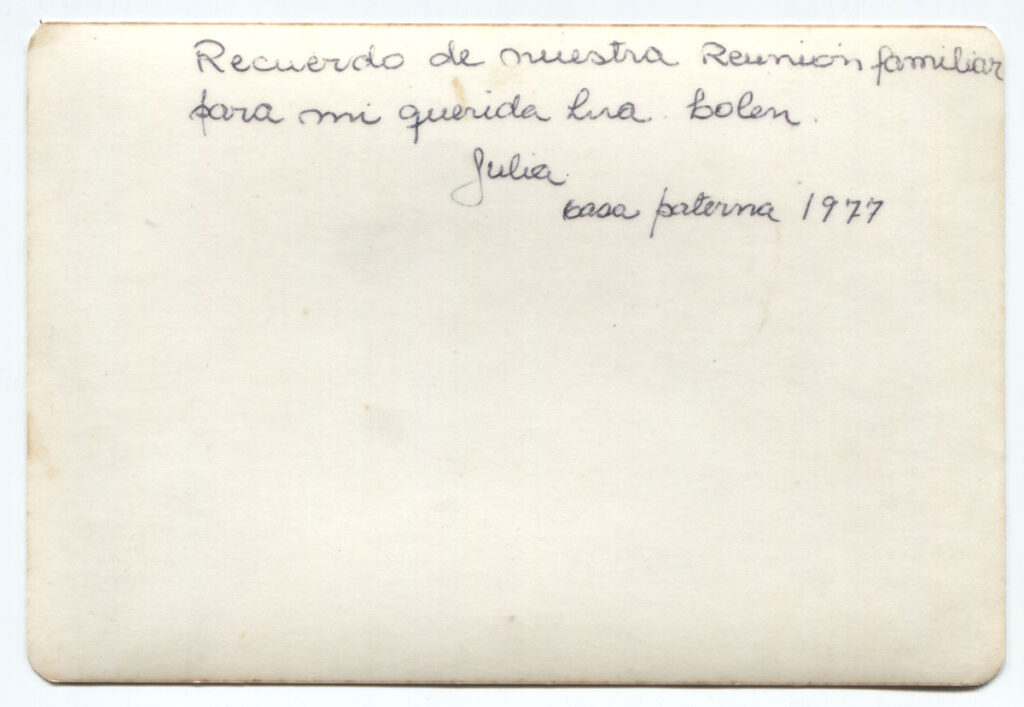 Recuerdo de nuestra Reunión familiar
para mi querida
Julia
casa paterna 1977